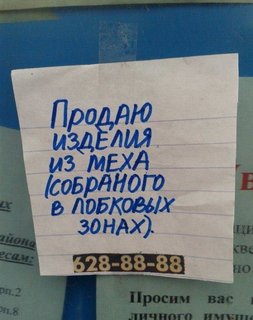 Продаю
изделия
из меха
(собраного
в лобковых
зонах).
628-88-88
сам:
рп.2
рп.8
Просим вас
личного имущ